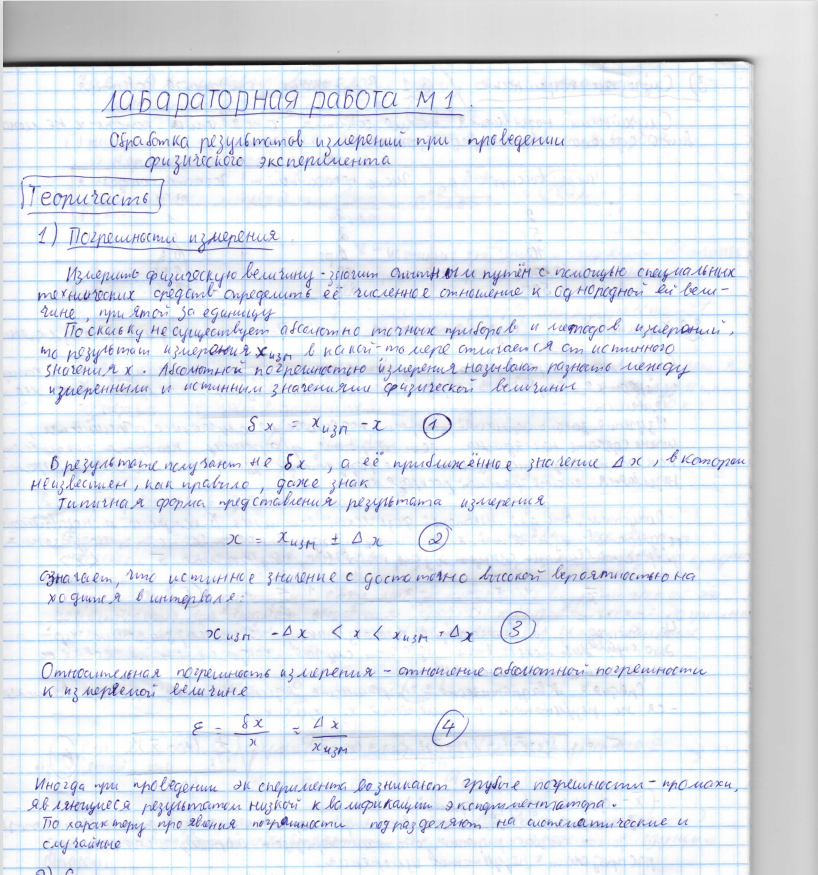 Лабараторная работа М1.
Обработка результатов измерений при проведении
физического эксперимента
Теоричасть
1) Погрешности измерения
Измерить физическую величину - значит опытным путём с помощью специальных
технических средств определить её численное отношение к однородной ей вели-
чине, принятой за единицу
Поскольку не существует абсолютно точных приборов и методов измерений,
то результат измерения xизм в какой-то мере отличается от истинного
значения x. Абсолютной погрешностью измерения называют разность между
измеренным и истинным значениями физической величины
δx = xизм - x (1)
В результате получают не δx, а её приближённое значение Δx, в котором
неизвестен, как правило, даже знак
Типичная форма представления результата измерения
x = xизм ± Δx (2)
означает, что истинное значение с достаточно высокой вероятностью на
ходится в интервале:
xизм - Δx < x < xизм + Δx (3)
Относительная погрешность измерения - отношение абсолютной погрешности
к измеряемой величине
ε = δx/x ≈ Δx/xизм (4)
Иногда при проведении эксперимента возникают грубые погрешности - промахи,
являющиеся результатом низкой квалификации экспериментатора.
По характеру проявления погрешности подразделяют на систематические и
случайные